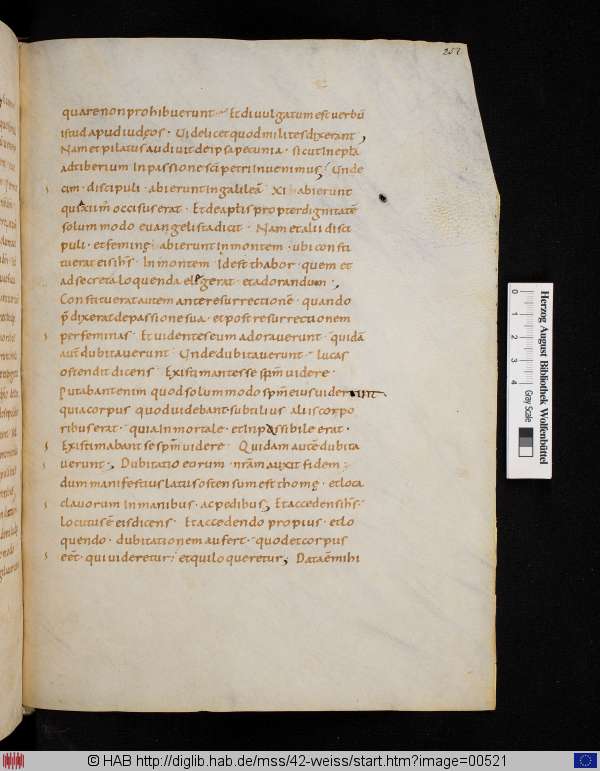 257
quare non prohibuerunt · Et divulgatum est verbū
istud apud iudęos · Videlicet quod milites dixerant,
Nam et pilatus audivit de ipsa pecunia · sicut in epła
ad tiberium In passione sc̄i petri Invenimus; Unde
cim · discipuli · abierunt In galileā · XI · abierunt
quia XII m̄ occisus erat · Et de ap̄lis propter dignitatē
solum modo evangelista dicit · Nam et alii disci
puli · et feminę · abierunt In montem · ubi consti
tuerat eis ihs̄ · In montem Id est thabor · quem et
ad secreta loquenda elegerat · et adorandum ·,
Constituerat autem ante resurrectionē · quando
p̄dixerat de passione sua · et post resurrectionem
per feminas · Et videntes eum adoraverunt · quidā
aut̄ dubitaverunt · Unde dubitaverunt · lucas
ostendit dicens · Existimantes se sp̄m videre ·
Putabant enim quod solummodo sp̄m eius viderunt
quia corpus quod videbant subtilius aliis corpo
ribus erat · quia Inmortale · et Inpassibile erat ·
Existimabant se sp̄m videre · Quidam autē dubita
verunt, Dubitatio eorum · nr̄am auxit fidem;
dum manifestius latus ostensum est thomę · et loca
clavorum In manibus · ac pedibus, Et accedens ihs̄ ·
locutus ē eis dicens · Et accedendo propius · et lo
quendo · dubitationem aufert · quod et corpus
eēt · qui videretur · et qui loqueretur, Data ē mihi
Herzog August Bibliothek Wolfenbüttel
0 1 2 3 4
Gray Scale
© HAB http://diglib.hab.de/mss/42-weiss/start.htm?image=00521